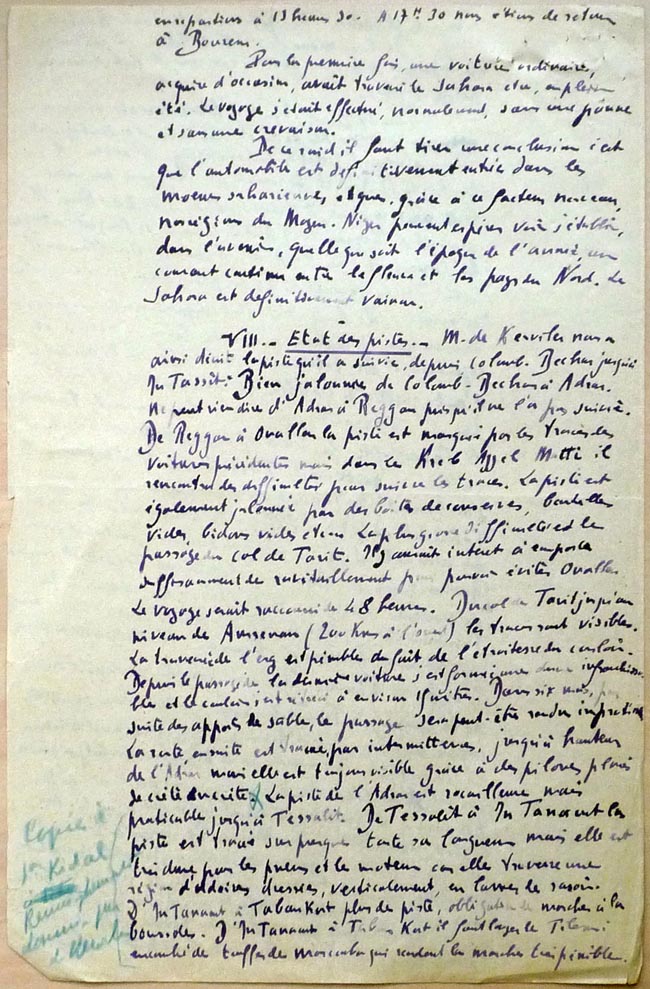 en repartions à 13 heures 30. A 17H 30 nous étions de retour
à Bourem.
Pour la première fois, une voiture ordinaire,
acquise d'occasion, avait traversé le Sahara et ce, en plein
été. Le voyage s'était effectué, normalement, sans une panne
et sans une crevaison.
De ce raid il faut tirer une conclusion c'est
que l'automobile est définitivement entrée dans les
moeurs sahariennes, et que, grâce à ce facteur nouveau,
nos régions du Moyen-Niger peuvent espérer voir s'établir,
dans l'avenir, quelle que soit l'époque de l'année, un
courant continu entre le fleuve et les pays du Nord. Le
Sahara est définitivement vaincu.
VIII.- Etat des pistes.- M. de Kerviler nous a
ainsi décrit la piste qu'il a suivie, depuis Colomb-Bechar jusqu'à
In Tassit: Bien jalonnée de Colomb-Bechar à Adrar.
Ne peut rien dire d'Adrar à Reggan puisqu'il ne l'a pas suivie.
De Reggan à Ouallen la piste est marquée par les traces des
voitures précédentes mais dans le Kreb Azzel Matti il
rencontra des difficultés pour suivre les traces. La piste est
également jalonnée par des boîtes de conserves, bouteilles
vides, bidons vides et La plus grosse difficulté est le
passage du col de Tarit. Il y aurait intérêt à emporter
suffisamment de ravitaillement pour pouvoir éviter Ouallen
Le voyage serait raccourci de 48 heures. Du col de Tarit jusqu'au
niveau de (200 Kms à l'ouest) les traces sont visibles.
La traversée de l'erg est pénible du fait de l'étroitesse du couloir.
Depuis le passage de la dernière voiture s'est formée une dune infranchissa-
ble et le couloir s'est rétréci à environ mètres. Dans six mois, par
suite des apports de sable, le passage sera peut-être rendu impraticable
La route ensuite est tracée, par intermittences, jusqu'à hauteur
de l'Adrar mais elle est toujours visible grâce à des pilones placés
de crête en crête. La piste de l'Adrar est rocailleuse mais
praticable jusqu'à Tessalit. De Tessalit à In Tanaout la
piste est tracée sur presque toute sa longueur mais elle est
très dure pour les pneus et le moteur car elle traverse une
région d'ardoises dressées, verticalement, en lames de rasoir.
D'In Tanaout à Tabankort plus de piste, obligation de marcher à la
boussole. D'In Tanaout à Tabankort il faut longer le Tilemsi
de touffes de qui rendent la marche très pénible.
Copié
pr Kidal
à
Renseignements
donnés par